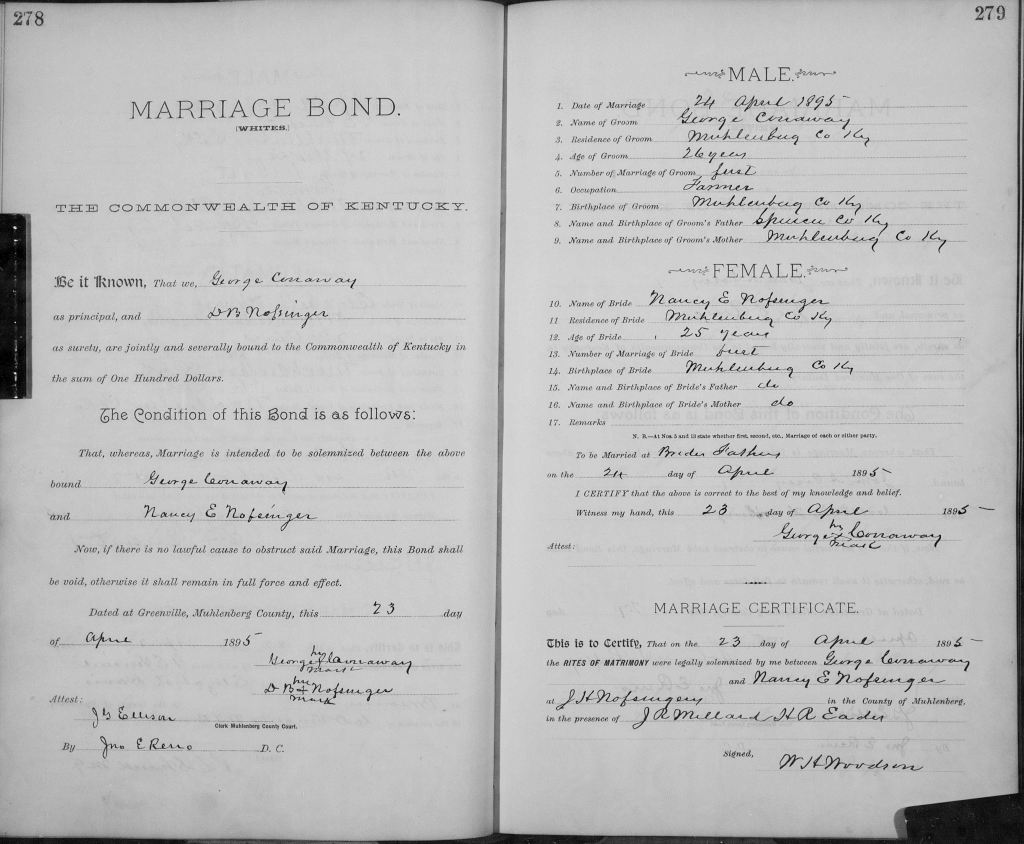 278
MARRIAGE BOND.
[WHITES.]
THE COMMONWEALTH OF KENTUCKY.
Be it Known, That we, George Conaway
as principal, and D B Nofsinger
as surety, are jointly and severally bound to the Commonwealth of Kentucky in
the sum of One Hundred Dollars.
The Condition of this Bond is as follows:
That, whereas, Marriage is intended to be solemnized between the above
bound George Conaway
and Nancy E Nofsinger
Now, if there is no lawful cause to obstruct said Marriage, this Bond shall
be void, otherwise it shall remain in full force and effect.
Dated at Greenville, Muhlenberg County, this 23 day
of April 1895
his
George x Conaway
mark
his
D B x Nofsinger
mark
Attest:
Ellison
Clerk Muhlenberg County Court.
By Jno E Reno D. C.
279
MALE.
1. Date of Marriage 24 April 1895
2. Name of Groom George Conaway
3. Residence of Groom Muhlenburg Co Ky
4. Age of Groom 26 years
5. Number of Marriage of Groom first
6. Occupation Farmer
7. Birthplace of Groom Muhlenburg Co Ky
8. Name and Birthplace of Groom's Father Spencer Co Ky
9. Name and Birthplace of Groom's Mother Muhlenburg Co Ky
FEMALE.
10. Name of Bride Nancy E Nofsinger
11 Residence of Bride Muhlenburg Co Ky
12. Age of Bride 25 years
13. Number of Marriage of Bride first
14. Birthplace of Bride Muhlenburg Co Ky
15. Name and Birthplace of Bride's Father do
16. Name and Birthplace of Bride's Mother do
17. Remarks
N. B.—At Nos. 5 and 13 state whether first, second, etc., Marriage of each or either party.
To be Married at Brides Fathers
on the 24 day of April 1895
I CERTIFY that the above is correct to the best of my knowledge and belief.
Witness my hand, this 23 day of April 1895
his
George x Conaway
mark
Attest:
MARRIAGE CERTIFICATE.
This is to Certify, That on the 23 day of April 1895
the RITES OF MATRIMONY were legally solemnized by me between George Conaway
and Nancy E Nofsinger
at J H Nofsingers in the County of Muhlenberg,
in the presence of J R Millard H R Eades
Signed,
W H Woodson